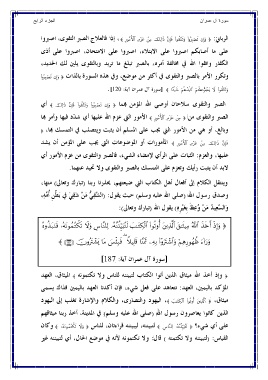 سورة آل عمران
الجزء الرابع
الرباني: ﴿ وَإِن تَصْبِرُوا وَتَتَّقُوا فَإِنَّ ذَٰلِكَ مِنْ عَزْمِ الْأُمُورِ ﴾، إذا فالعلاج الصبر والتقوى، اصبروا
على ما أصابكم اصبروا على الابتلاء، اصبروا على الامتحان، اصبروا على أذى
الكفار واتقوا الله في مخالفة أمره، بالصبر تبلغ ما تريد وبالتقوى يلين لك الحديد،
وتكرر الأمر بالصبر والتقوى في أكثر من موضع، وفي هذه السورة بالذات ﴿ وَإِن تَصْبِرُوا
وَتَتَّقُوا لَا يَضُرُّكُمْ كَيْدُهُمْ شَيْئًا ﴾ [سورة آل عمران آية: 120].
الصبر والتقوى سلاحان أوصى الله المؤمن بهما ﴿ وَإِن تَصْبِرُوا وَتَتَّقُوا فَإِنَّ ذَٰلِكَ ﴾ أي
الصبر والتقوى من ﴿ مِنْ عَزْمِ الْأُمُورِ ﴾ الأمور التي عزم الله عليها أي شدد فيها وأمر بها
وبالغ، أو هي من الأمور التي يجب على المسلم أن يثبت ويتصلب في التمسك بها، ﴿
فَإِنَّ ذَٰلِكَ مِنْ عَزْمِ الْأُمُورِ ﴾ المأمورات أو الموضوعات التي يجب على المؤمن أن يشد
عليها، والعزم: الثبات على الرأي لإمضاء الشيء، فالصبر والتقوى من عزم الأمور أي
لابد أن يثبت رأيك وتعزم على التمسك بالصبر والتقوى ولا تحيد عنهما.
وينتقل الكلام إلى أفعال أهل الكتاب التي ضيعتهم، يحذرنا ربنا (تبارك وتعالى) منها،
وصدق رسول الله (صلى الله عليه وسلم) حيث يقول: (الشَّقِيُّ مَنْ شَقِيَ فِي بَطْنِ أُمِّهِ،
وَالسَّعِيدُ مَنْ وُعِظَ بِغَيْرِهِ) يقول الله (تبارك وتعالى):
﴿ وَإِذْ أَخَذَ اللَّهُ مِيثَاقَ الَّذِينَ أُوتُوا الْكِتَابَ لَتُبَيِّنُنَّهُ لِلنَّاسِ وَلَا تَكْتُمُونَهُ فَنَبَذُوهُ
وَرَاءَ ظُهُورِهِمْ وَاشْتَرَوْا بِهِ ثَمَنًا قَلِيلًا فَبِئْسَ مَا يَشْتَرُونَ ﴾
[سورة آل عمران آية: 187]
﴿ وإذ أخذ الله ميثاق الذين أتوا الكتاب لتبيننه للناس ولا تكتمونه ﴾ الميثاق، العهد
المؤكد باليمين، العهد: تعاهد على فعل شيء، فإن أكدنا العهد باليمين فذاك يسمى
ميثاق، ﴿ الَّذِينَ أُوتُوا الْكِتَابَ ﴾، اليهود والنصارى، والكلام والإشارة تغلب إلى اليهود
الذين كانوا يعاصرون رسول الله (صلى الله عليه وسلم) في المدينة، أخذ ربنا ميثاقهم
على أي شيء؟ ﴿ لَتُبَيِّنُنَّهُ لِلنَّاسِ ﴾ لتبيننه، ليبيننه قراءتان، للناس ﴿ وَلَا تَكْتُمُونَهُ ﴾ وكان
القياس: (لتبيننه ولا تكتمنه ) قال: ولا تكتمونه لأنه في موضع الحال، أي لتبيننه غير